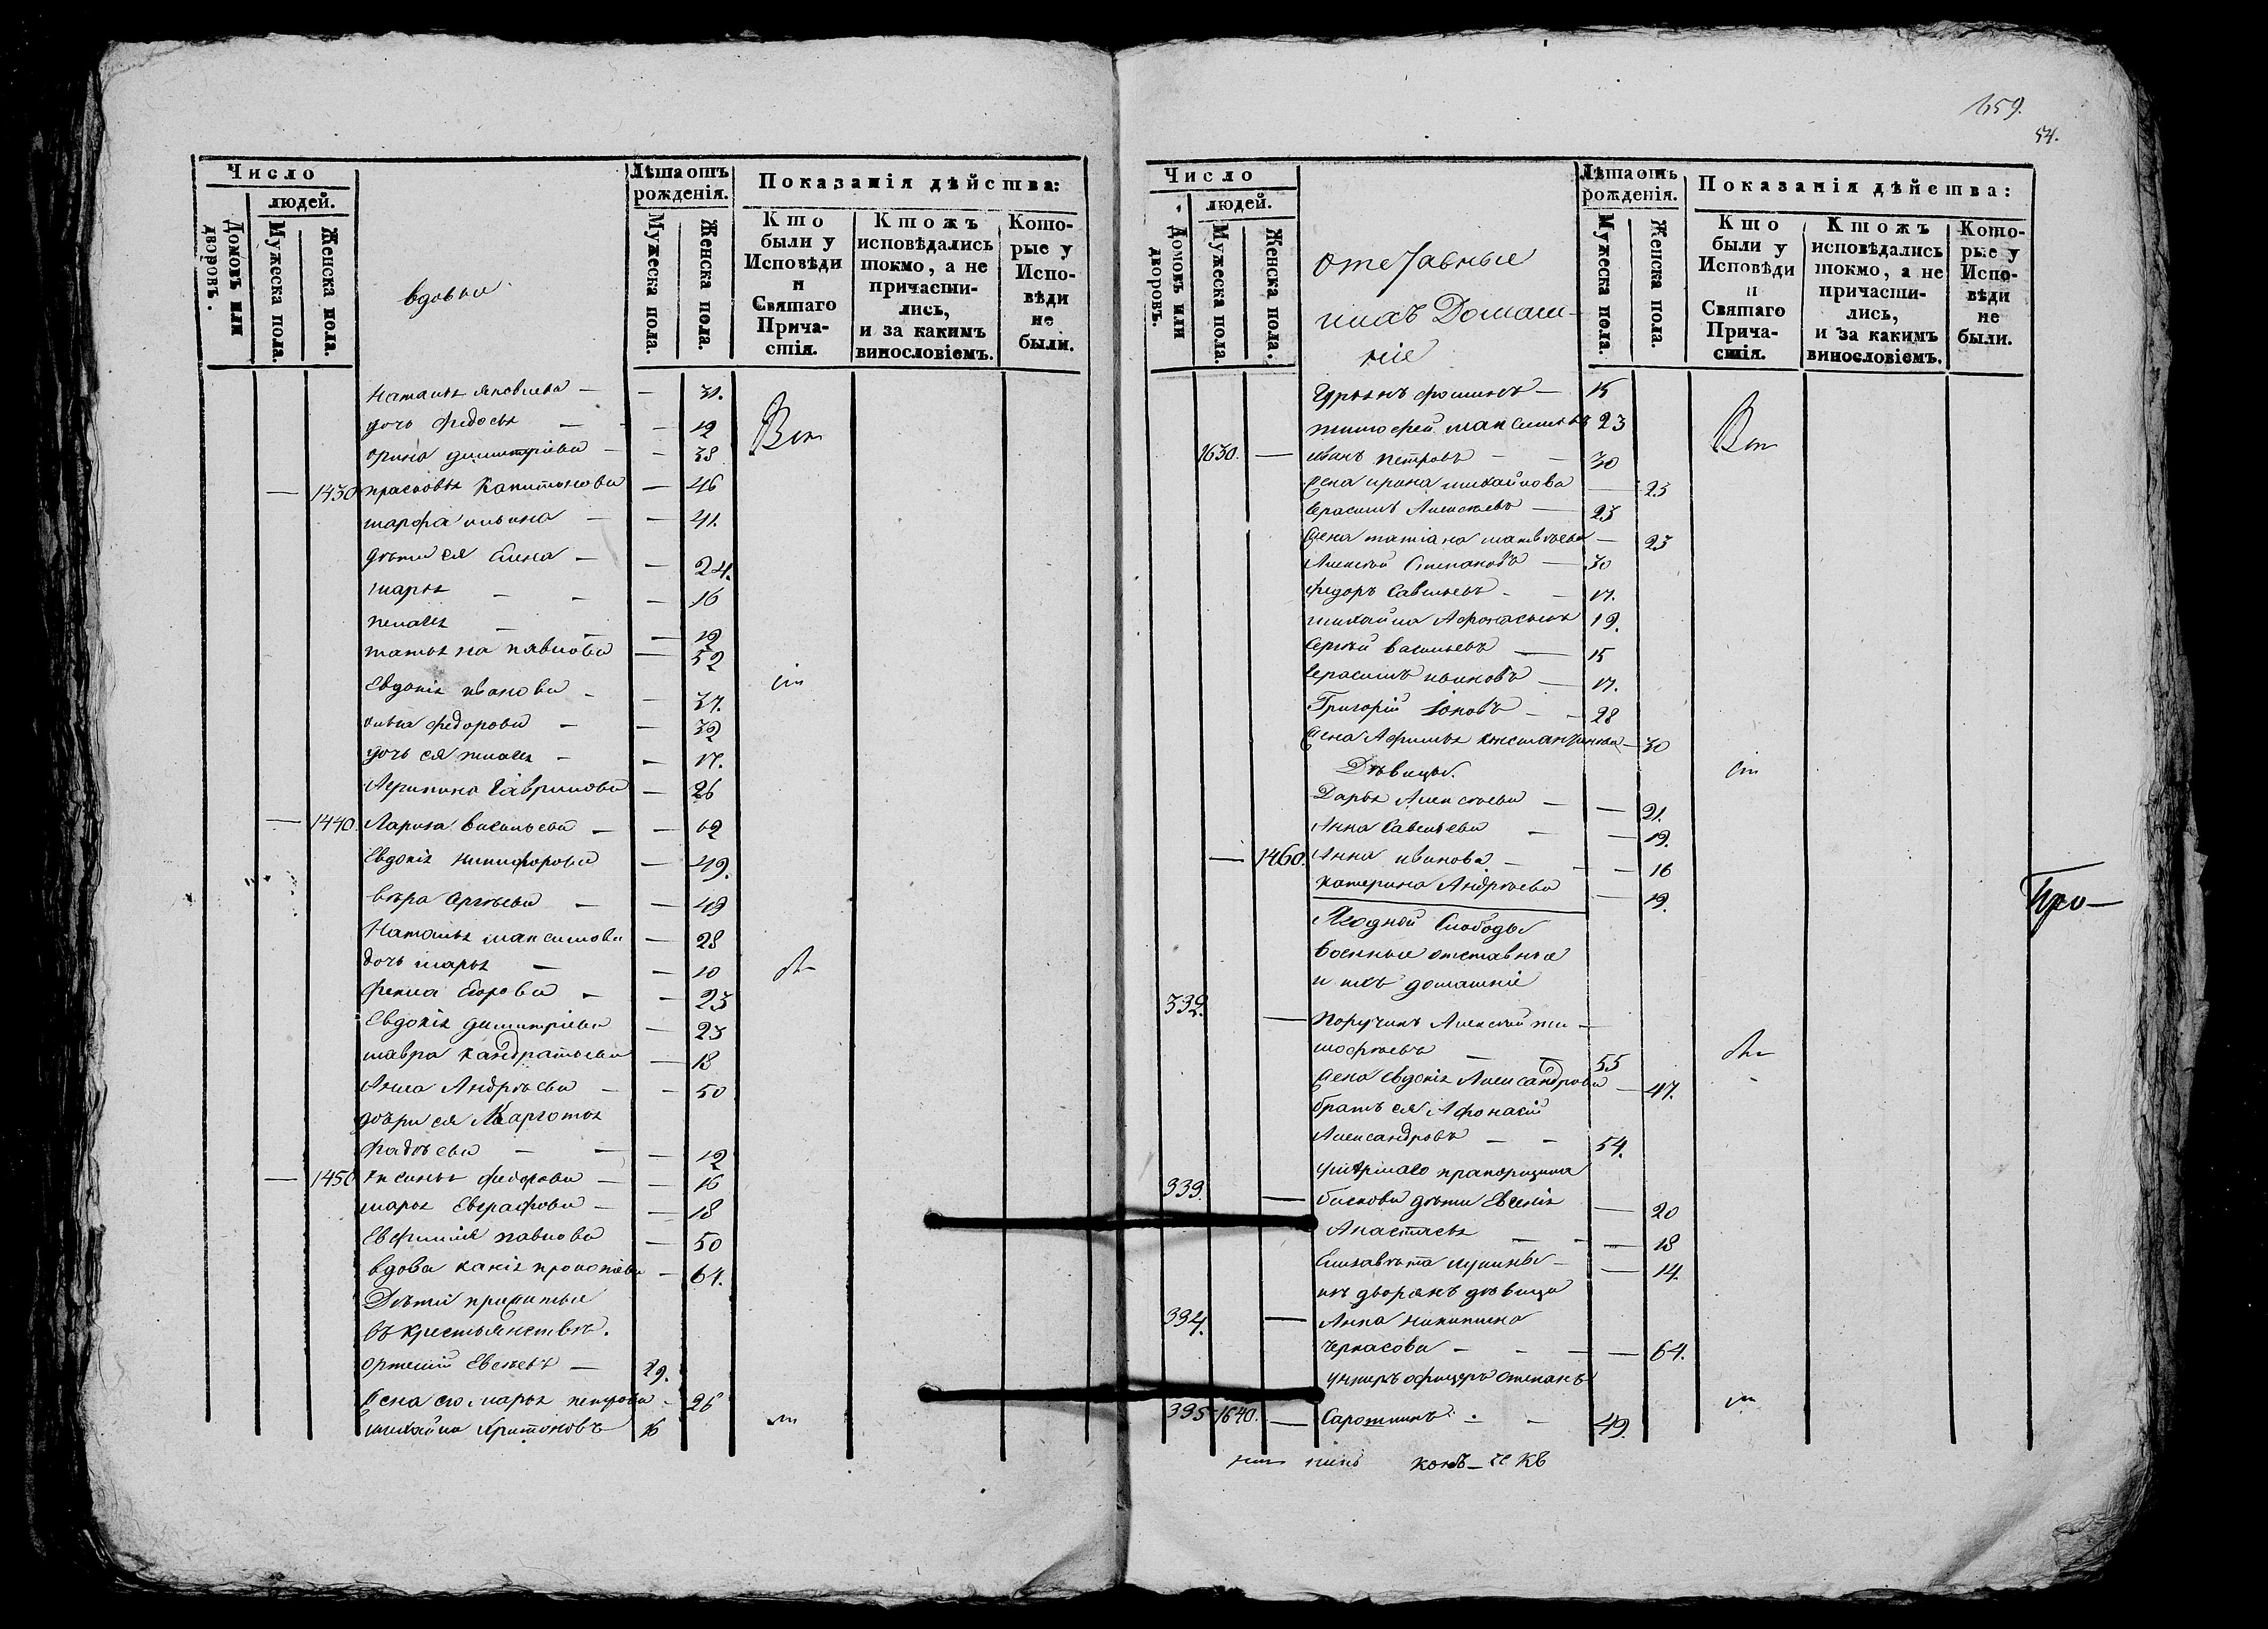 Число
людей.
Домовъ или дворовъ.
Мужеска пола.
Женска пола.
вдовы
Лѣта отъ рожденія.
Мужеска пола.
Женска пола.
Показанія дѣйства:
Кто были у Исповѣди и Святаго Причастія.
Ктожъ исповѣдались токмо, а не причастились, и за какимъ винословіемъ.
Которые у Исповѣди не были.
Наталья яковлева — — 31.
дочь Федосья — — 12
Орина димитріева — — 38
— 1430 прасковья Капитонова — 46
марфа ильина — — 41.
дѣти ея Елена — — 24.
марья — — — 16
пелагея — — — 12
татьяна павлова — 52
Евдокія иванова — — 37.
анна федорова — — 32
дочь ея пелагея — — 17.
Агрипина Гаврилова — 26
— 1440. Ларина васильева — — 62
Евдокія никифорова — 49.
вѣра Сергѣева — — 43
Наталья максимова — 28
дочь марья — — 10
Фекла Егорова — — 23
Евдокія димитріева — 23
мавра Кандратьева — 18
Анна Андрѣева — — 50
дочри ея Маргота
Фадѣева — — — 12
— 1450 Аксинья федорова — — 16
марья Евграфова — — 18
Евфимія павлова — 50
вдова Ксенія прокопіева — 61.
Дѣти прижитые
въ крестьянствѣ.
Артемій Евсеевъ — 29.
Жена его марья петрова — 26
михайла Харитоновъ 16
159.
54.
Число
людей.
Домовъ или дворовъ.
Мужеска пола.
Женска пола.
отставные
ихъ Домаш-
ніе
Лѣта отъ рожденія.
Мужеска пола.
Женска пола.
Показанія дѣйства:
Кто были у Исповѣди и Святаго Причастія.
Ктожъ исповѣдались токмо, а не причастились, и за какимъ винословіемъ.
Которые у Исповѣди не были.
Гурьянъ фоминъ — 15
тимофей максимовъ 23
1630. — иванъ петровъ — — 30
Жена ирина михайлова — 23
Герасимъ Алексѣевъ — 23
Жена татіана матвѣева — 23
Алексѣй Степановъ — 30
Федоръ Савельевъ — — 17.
михайла Афонасьевъ 19.
Сергѣй васильевъ — 15
Герасимъ ивановъ — 17.
Григорій Іоновъ — — 28
Жена Афимья константинова — 30
Дѣвицы.
Дарья Алексѣева — — 21.
Анна Савельева — — 19.
— 1460. Анна иванова — — 16
Катерина Андрѣева — 19.
Ягодной Слободы
военные отставные
и ихъ домашніе
332. — Поручикъ Алексѣй ти-
мофѣевъ — — 55
Жена евдокія Александрова — 47.
братъ ея Афонасій
Александровъ — — 54.
умершаго прапорщика
333. — быкова дѣти Евгенія — 20
Анастасья — — — 18
Елизавѣта лукины — — 14.
изъ дворянъ дѣвица
334. — Анна никитина
черкасова — — — 64.
унтеръ офицеръ степанъ
335 1640. — Саротнинъ — 49.
Про—